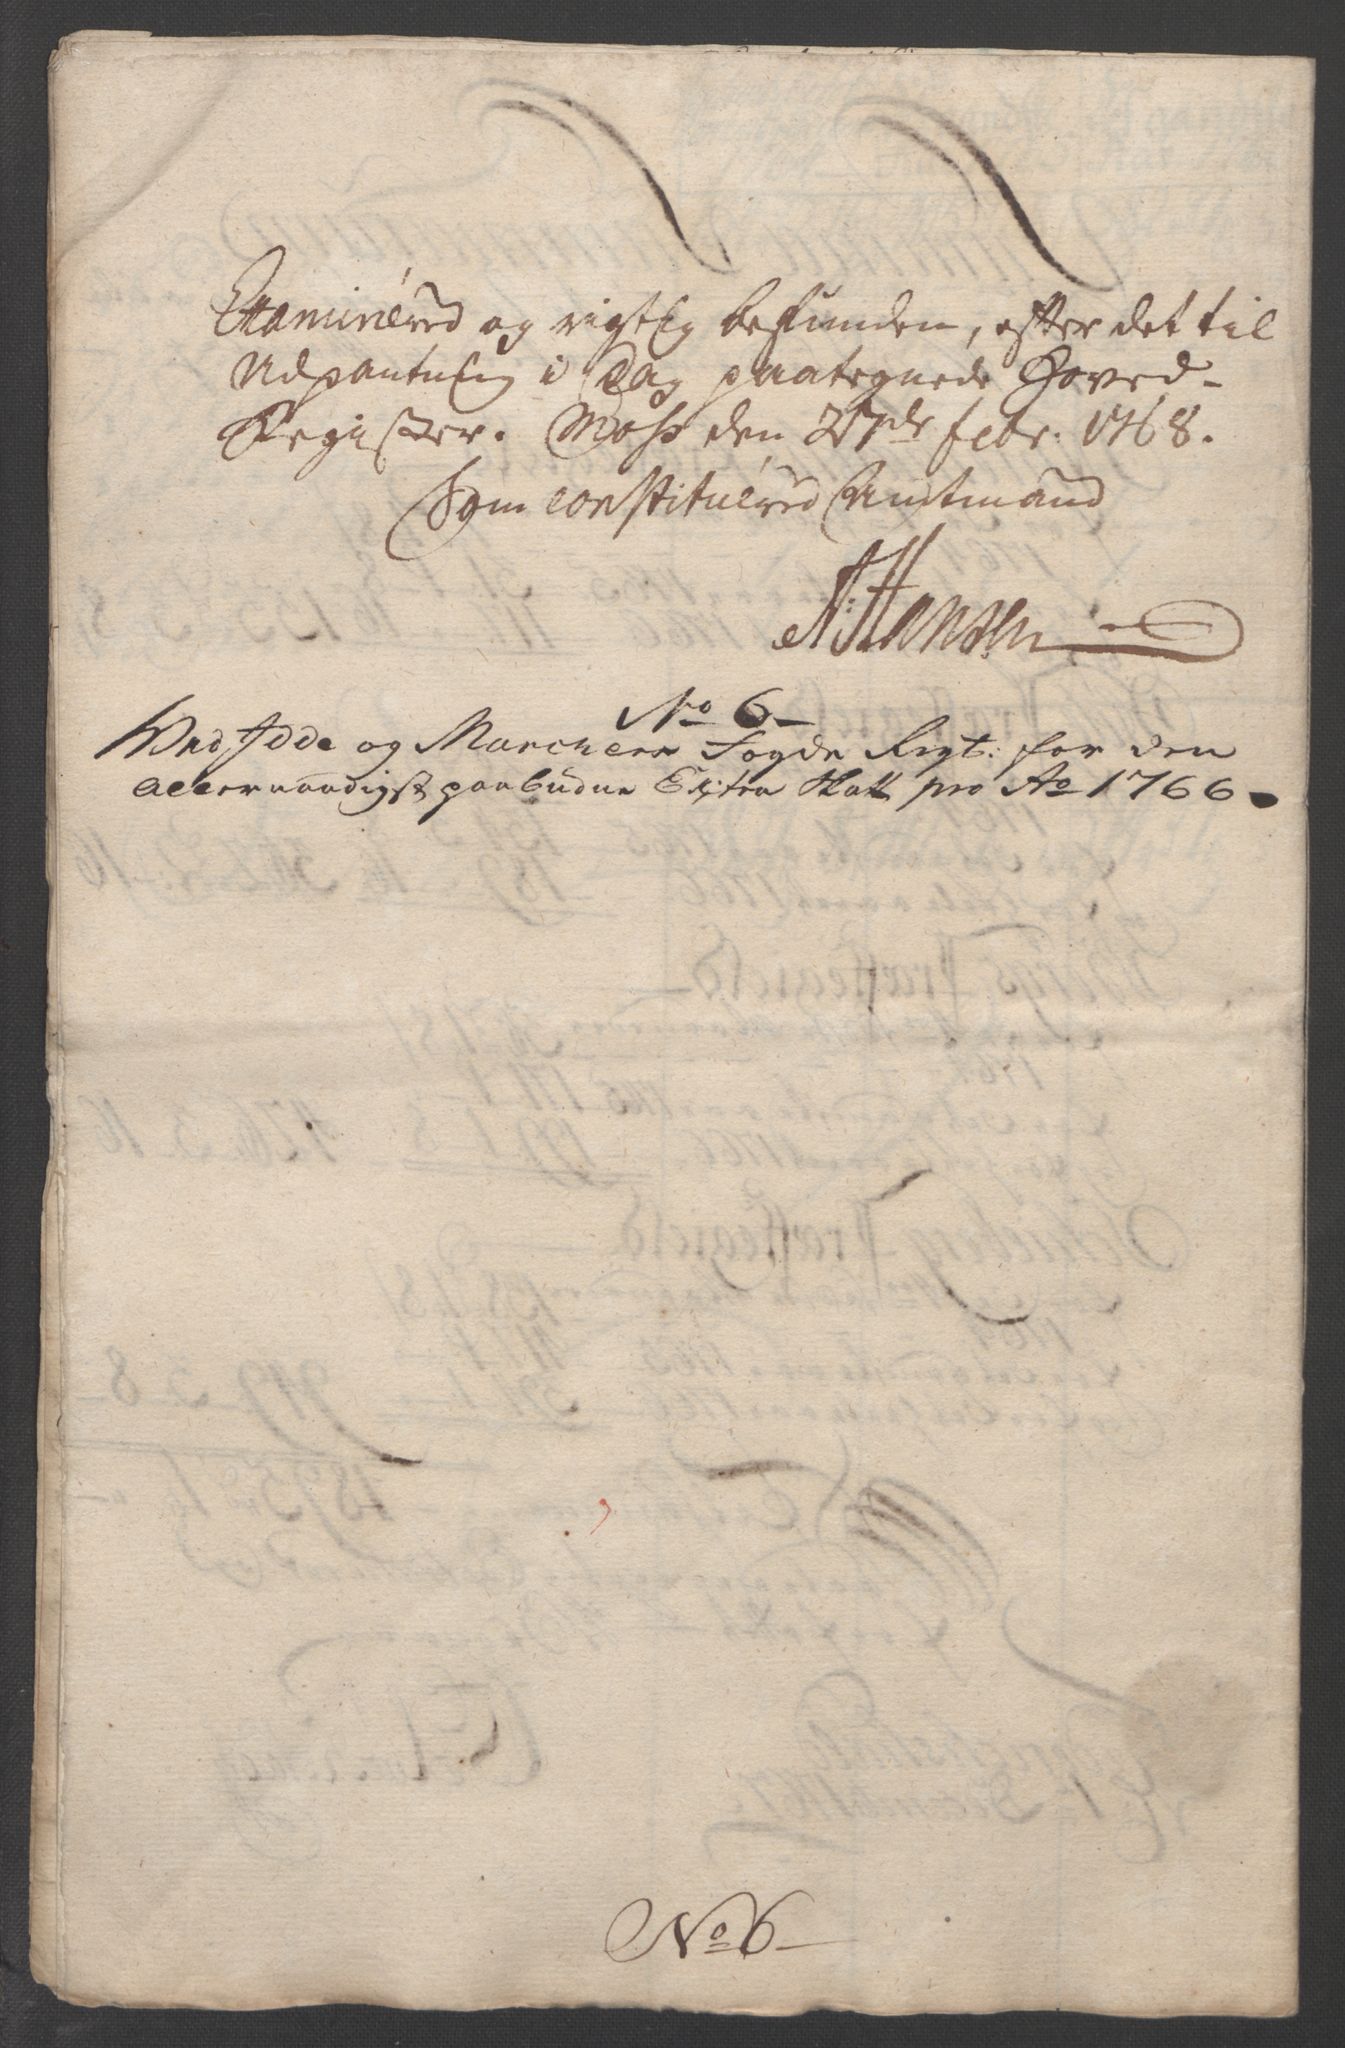 Examinered og rigtig befunden, efter det til
Udpantning i Dag paategnede Hoved-
Register. Moss den 27de febr: 1768.
Som constituered Amtmand
N: Hansen
No 6
Ved Idde og Marchers Fogde Regt: for den
allernaadigst paabudne Extra Skatt pro Ao 1766
No 6